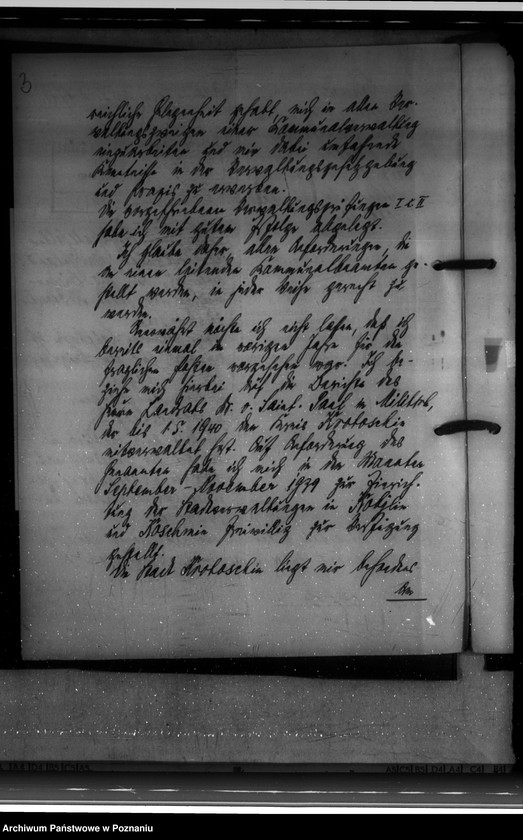 3
reichliche Gelegenheit gehabt, mich in allen Ver-
waltungszweigen einer Kommunalverwaltung
einzuarbeiten und mir dabei eingehende
Kenntnisse in der Verwaltungsgesetzgebung
und Praxis zu erwerben.
Die vorgeschriebenen Verwaltungsprüfungen I u. II
habe ich mit gutem Erfolge abgelegt.
Ich glaube daher, allen Anforderungen, die
an einen leitenden Kommunalbeamten ge-
stellt werden, in jeder Weise gerecht zu
werden.
Unerwähnt möchte ich nicht lassen, daß ich
bereits einmal im vorigen Jahre für den
fraglichen Posten vorgesehen war. Ich be-
ziehe mich hierbei auf die Berichte des
Herrn Landrats Dr. v. Saint-Paul in Militsch,
der bis 1.5.1940 den Kreis Krotoschin
mitverwaltet hat. Auf Anforderung des
Genannten habe ich mich in den Monaten
September - November 1939 zur Einrich-
tung der Stadtverwaltungen in Kobylin
und Koschmin freiwillig zur Verfügung
gestellt.
Die Stadt Krotoschin liegt mir besonders
am
Archiwum Państwowe w Poznaniu